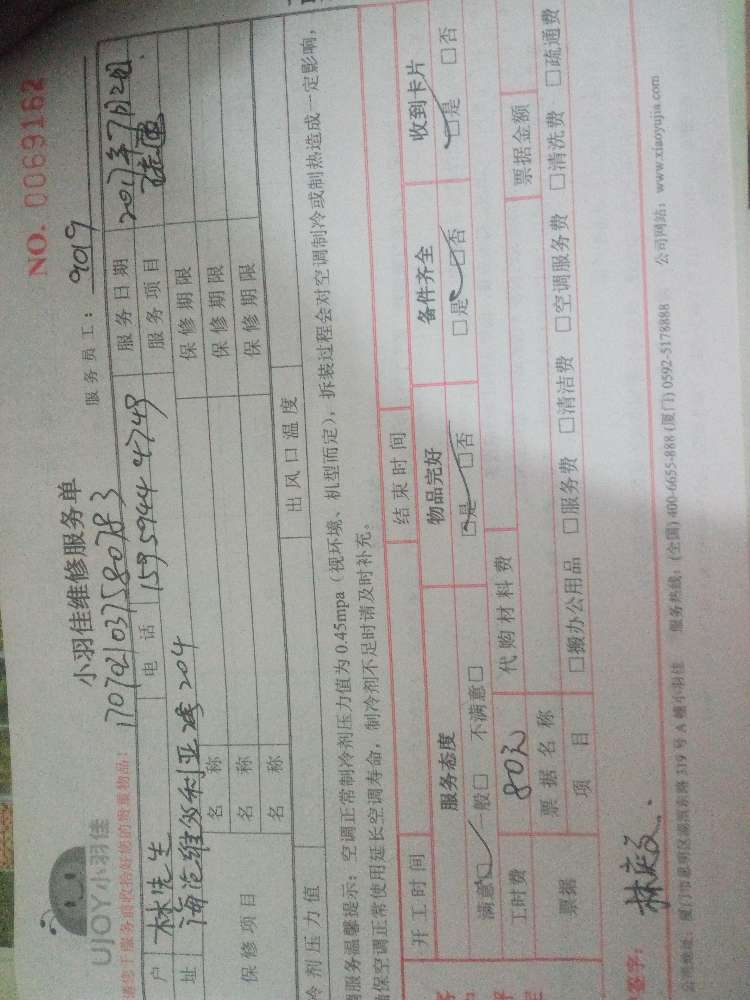 NO. 0069162
UJOY小羽佳
小羽佳维修服务单
服务员工: 9019
请您于服务前收拾好您的贵重物品:
1707021037580783
户 林先生 电话 15959444749 服务日期 2017年7月2日
址 海沧维多利亚 204 服务项目
保修项目 名称 保修期限
名称 保修期限
名称 保修期限
冷剂压力值 出风口温度
服务温馨提示: 空调正常制冷剂压力值为0.45mpa (视环境、机型而定), 拆装过程会对空调制冷或制热造成一定影响,
确保空调正常使用延长空调寿命, 制冷剂不足时请及时补充。
开工时间 结束时间
服务态度 物品完好 备件齐全 收到卡片
满意□ 一般□ 不满意□ □是 □否 □是 □否 □是 □否
工时费 80元 代购材料费
票据 票据名称 票据金额
项目 □搬办公用品 □服务费 □清洁费 □空调服务费 □清洗费 □疏通费
签字:
公司地址: 厦门市思明区湖滨东路319号A幢小羽佳 服务热线: (全国) 400-6655-888 (厦门) 0592-5178888 公司网站: www.xiaoyujia.com